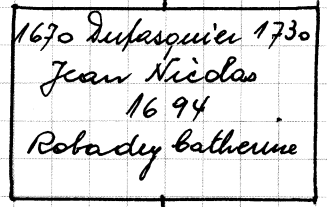 1670 Dupasquier 1730
Jean Nicolas
1694
Robadey Catherine